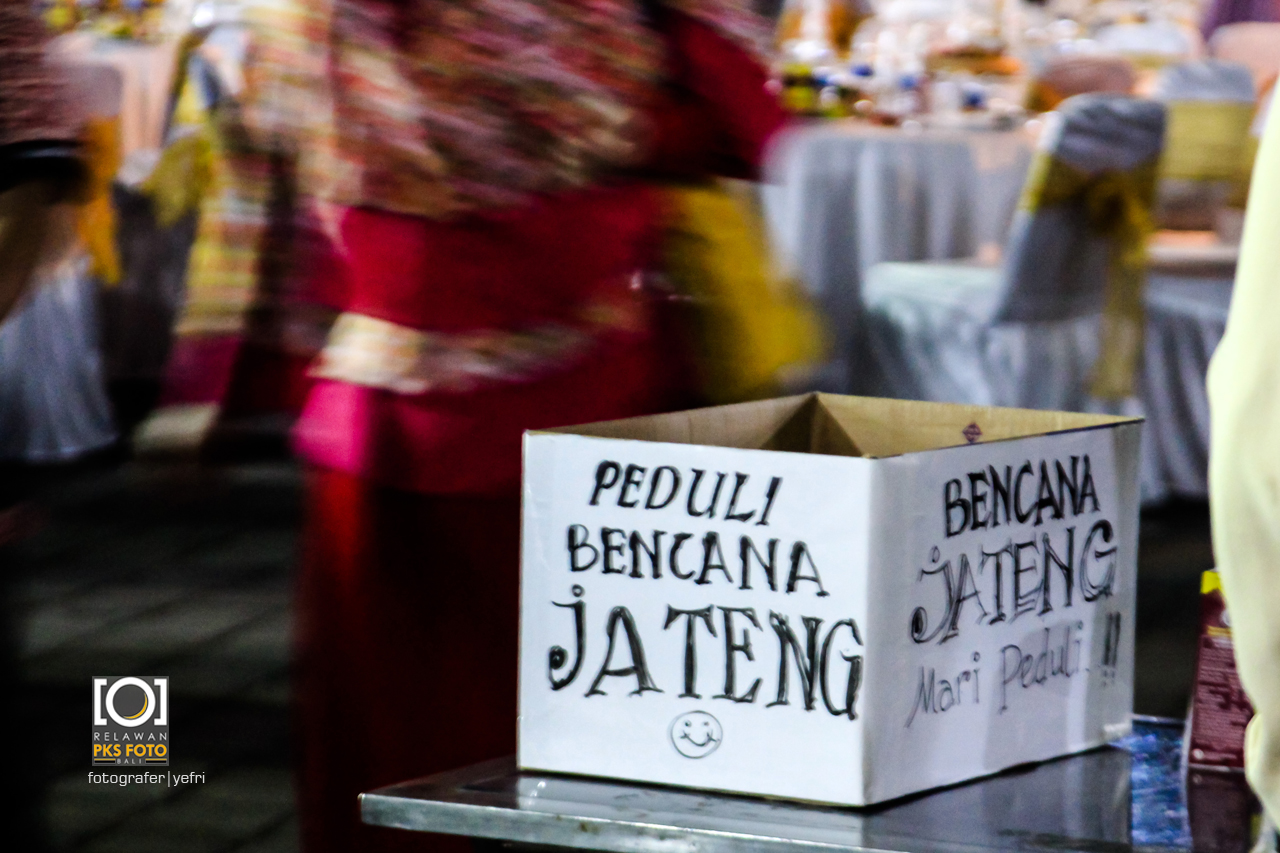 PEDULI
BENCANA
JATENG
BENCANA
JATENG
Mari Peduli..!!
RELAWAN
PKS FOTO
BALI
fotografer|yefri